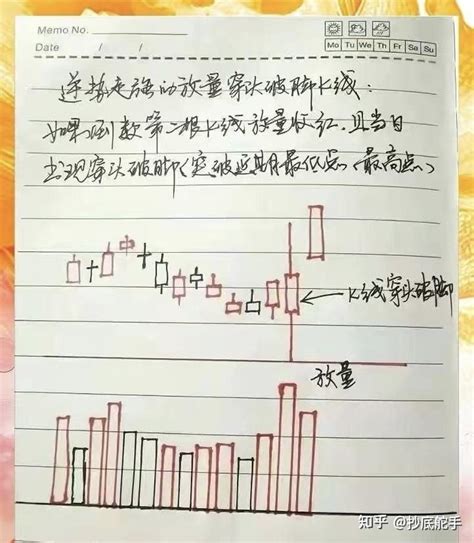 Memo No.
Mo Tu We Th Fr Sa Su
Date / /
逆势走强的放量穿头破脚K线:
如果倒数第二根K线放量收红,且当日
出现穿头破脚(突破近期最低点、最高点)
K线穿头破脚
放量
知乎 @抄底舵手